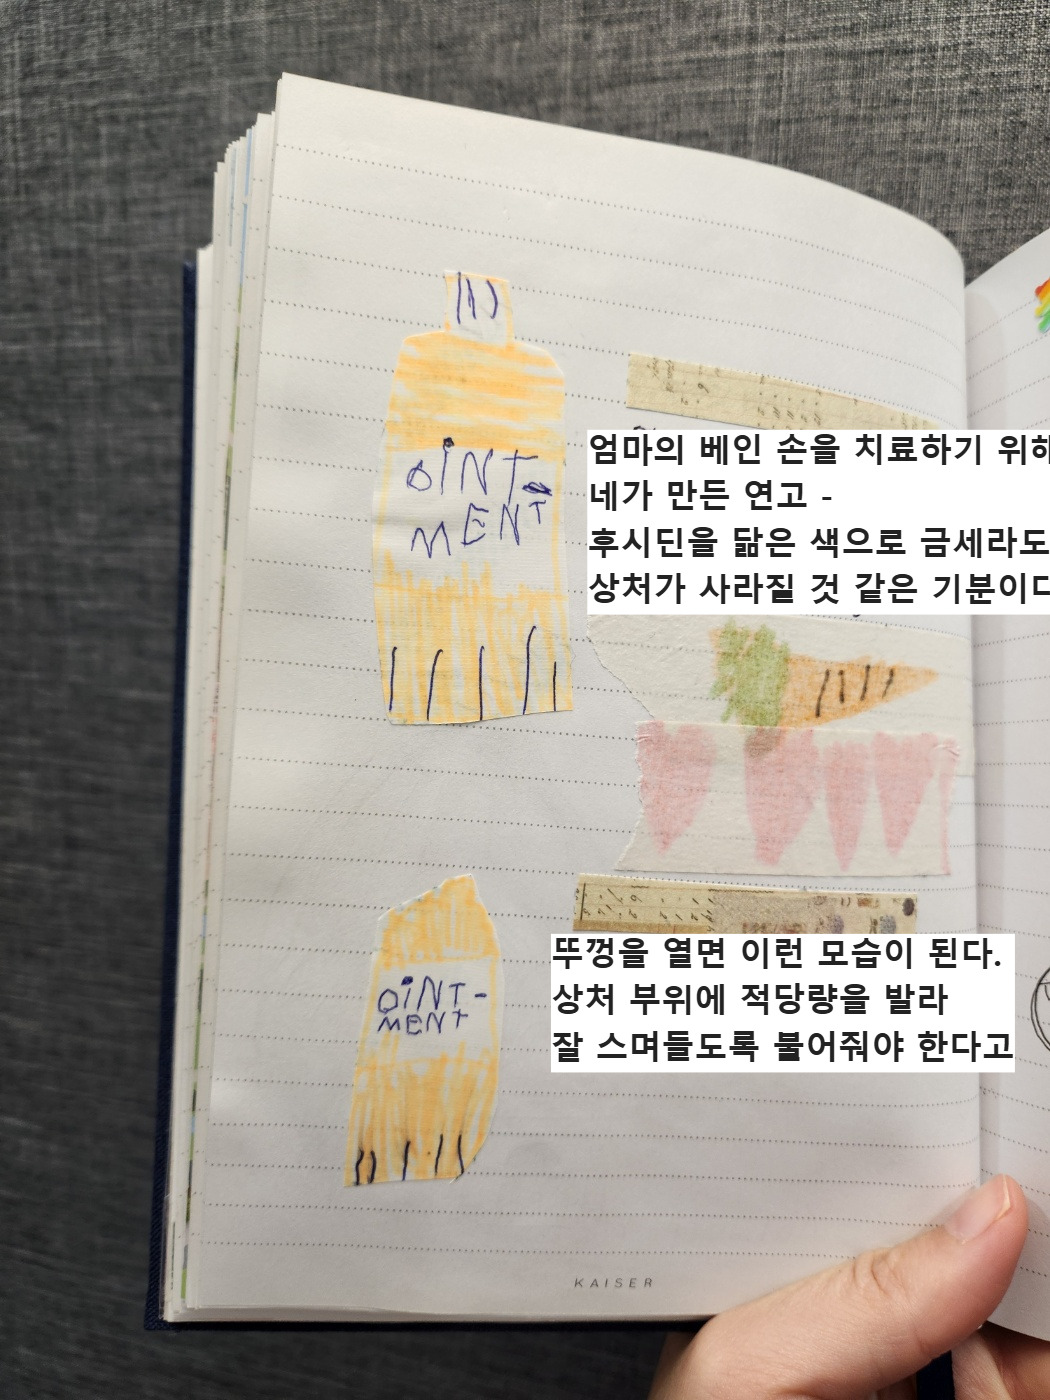 OINT-
MENT
엄마의 베인 손을 치료하기 위해
네가 만든 연고 -
후시딘을 닮은 색으로 금세라도
상처가 사라질 것 같은 기분이다
OINT-
MENT
뚜껑을 열면 이런 모습이 된다.
상처 부위에 적당량을 발라
잘 스며들도록 불어줘야 한다고
KAISER